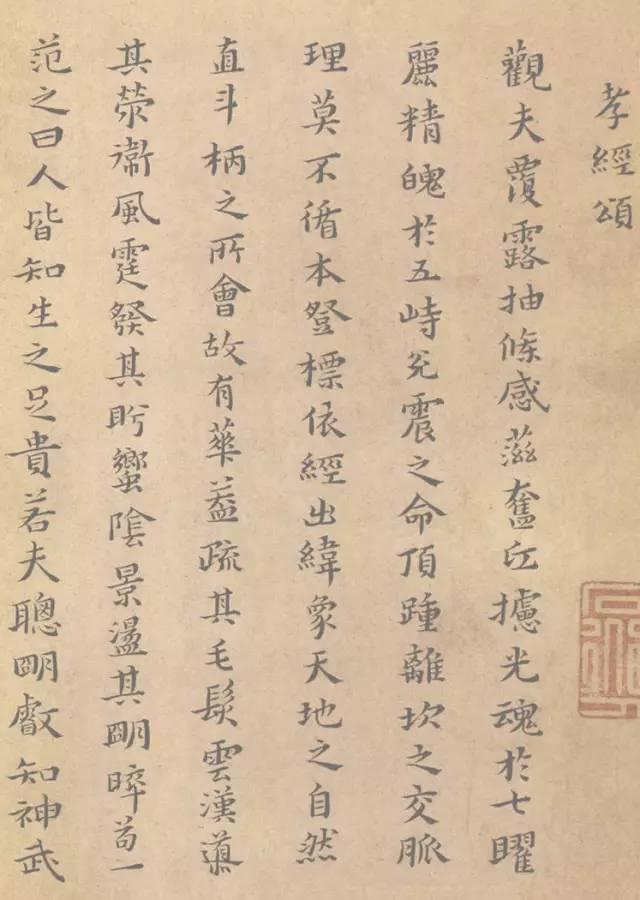 孝經頌
觀夫覆露抽條感蕬奮攄光魂於七曜
麗精魄於五峙兌震之命頂踵離坎之交脈
理莫不循本登標依經出緯象天地之自然
直斗柄之所會故有華蓋疏其毛髮雲漢導
其滎衞風霆發其肸蠁陰景盪其明晬苟一
范之曰人皆知生之足貴若夫聰明叡知神武